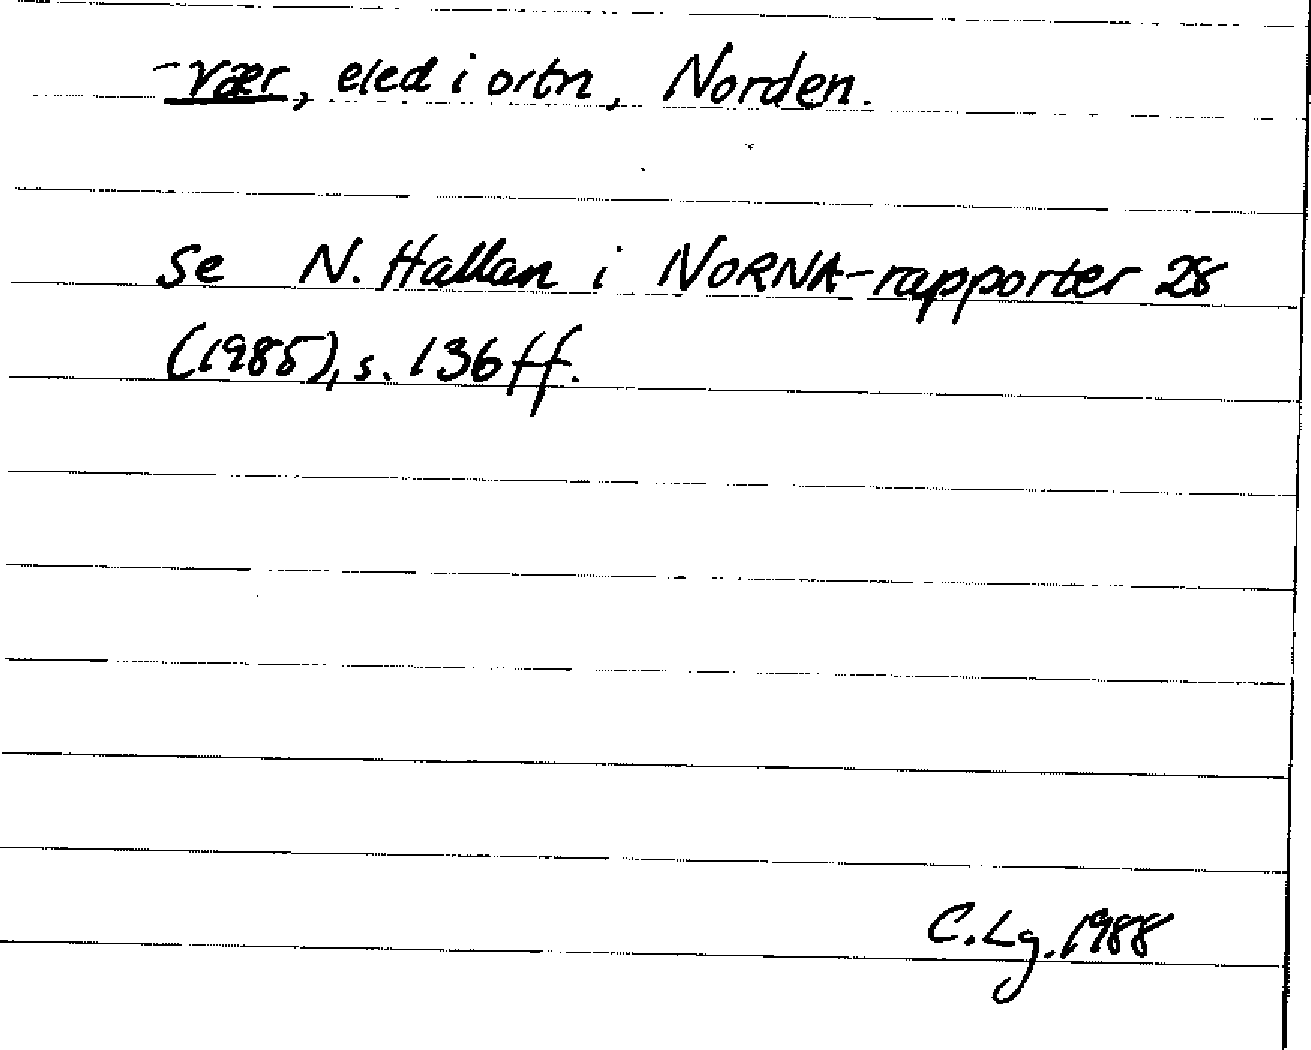 -vær, eled i ortn, Norden.
Se N. Hallan i NORNA-rapporter 28
(1985), s. 136 ff.
C.Lg. 1988